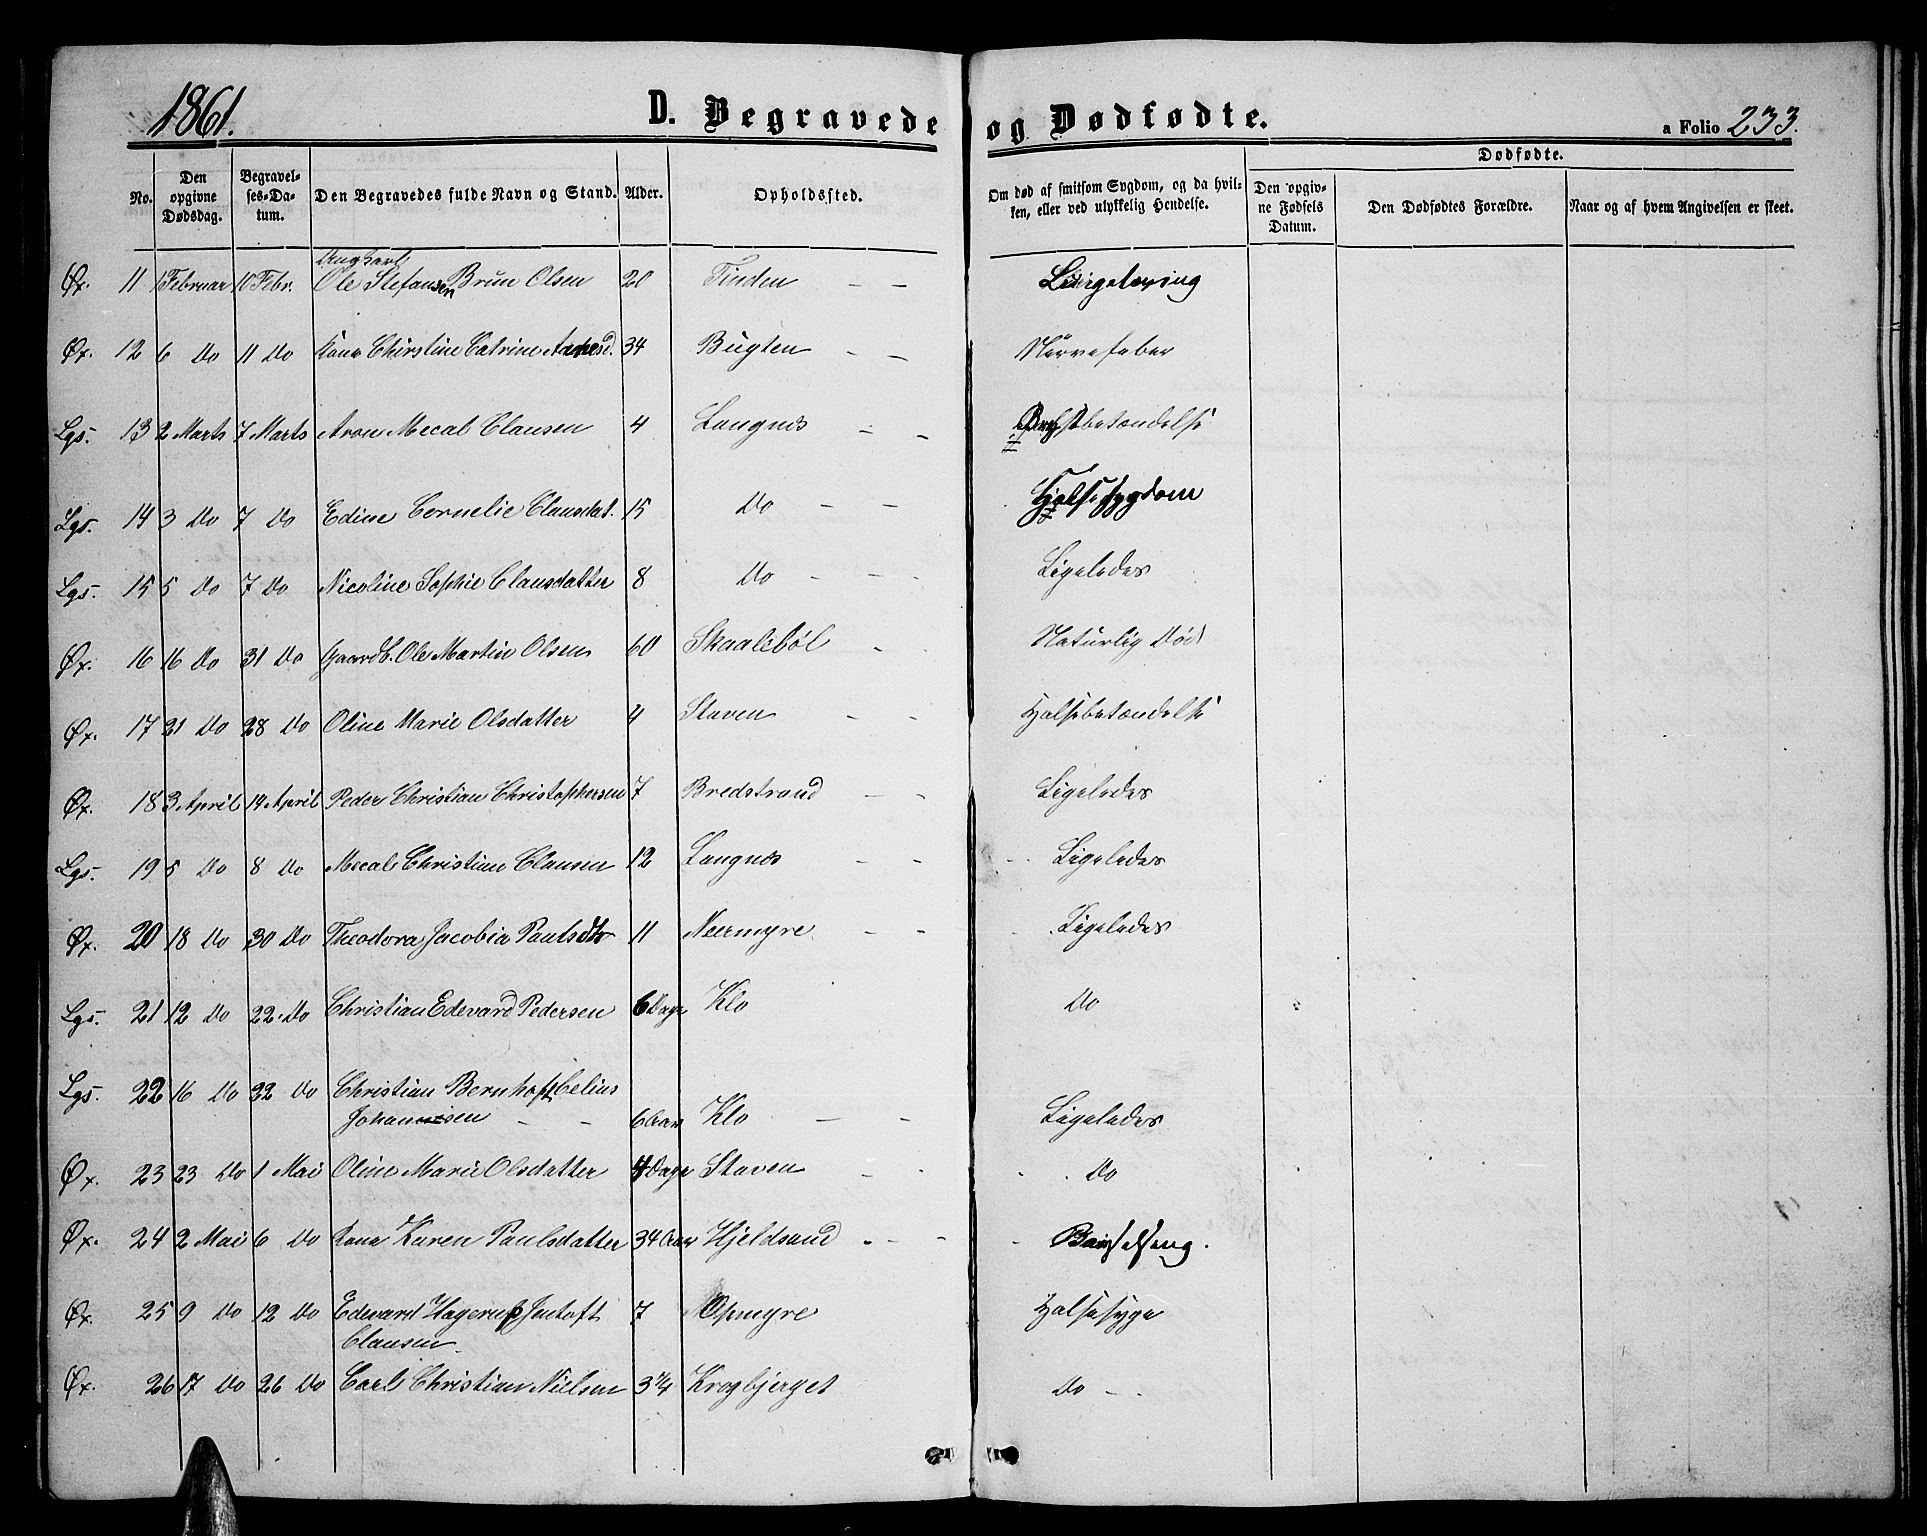 1861.
D. Begravede og Dødfødte.
a Folio 233.
No.
Den opgivne Dødsdag.
Begravelses-Datum.
Den Begravedes fulde Navn og Stand.
Alder.
Opholdssted.
Om død af smitsom Sygdom, og da hvilken, eller ved ulykkelig Hendelse.
Dødfødte.
Den opgivne Fødsels Datum.
Den Dødfødtes Forældre.
Naar og af hvem Angivelsen er skeet.
Ungkarl
Øx. 11 1 Februar 10 Febr. Ole Stefansen Brun Olsen 20 Tinden - - Lungetæring
Øx. 12 6 Do 11 Do Kone Chirstine Catrine 34 Bugten - - Nervefeber
Lgs. 13 2 Marts 7 Marts Aron Mecal Clausen 4 Langnes - - Brystbetændelse
Lgs. 14 3 Do 7 Do Edine Cornelie Clausdat. 15 Do - - Halsesygdom
Lgs. 15 5 Do 7 Do Nicoline Sophie Clausdatter 8 Do - - - Ligeledes
Øx. 16 16 Do 31 Do Gaardb. Ole Martin Olsen 60 Skaalebøl - Naturlig Død
Øx. 17 21 Do 28 Do Oline Marie Olsdatter 4 Staven - - Halsebetændelse
Øx. 18 3 April 14 April Peder Christian Christophersen 7 Bredstrand - - Ligeledes
Lgs. 19 5 Do 8 Do Mecal Christian Clausen 12 Langnes - - Ligeledes
Øx. 20 18 Do 30 Do Theodora Jacobia Paulsdtr 11 Neermyre - - Ligeledes
Lgs. 21 12 Do 22 Do Christian Edevard Pedersen 6 Dage Klo Do
Lgs. 22 16 Do 22 Do Christian Bernhoft Celius
Johannesen - - 6 Aar Klo - - Ligeledes
Øx. 23 23 Do 1 Mai Oline Marie Olsdatter 4 Dage Staven - Do
Øx. 24 2 Mai 6 Do Kone Karen Paulsdatter 34 Aar Hjeldsand - - - Barselseng.
Øx. 25 9 Do 12 Do Edevard Hagerup Jentoft 7 Opmyre Halsesyge
Clausen
Øx. 26 17 Do 26 Do Carl Christian Nielsen 3 1/4 Krogbjerget Do -